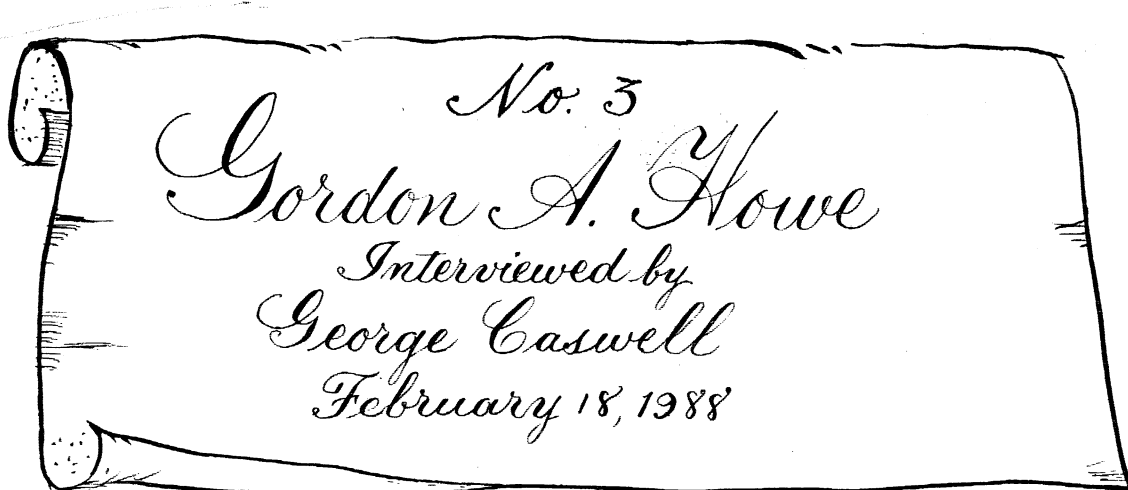 No. 3
Gordon A. Howe
Interviewed by
George Caswell
February 18, 1988